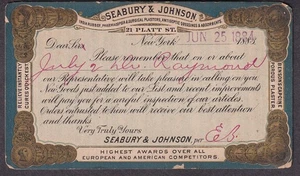 SEABURY & JOHNSON
21 PLATT ST.
JUN 25 1884
New York 188
Dear Sir
July 2 Lew. Raymond
Please remember that on or about
our Representative will take pleasure in calling on you.
New Goods just added to our List and recent improvements
will pay you for a careful inspection of our articles.
Orders intimated to him will receive our best attention
and thanks.
Very Truly Yours
SEABURY & JOHNSON, per E.C.
HIGHEST AWARDS OVER ALL
EUROPEAN AND AMERICAN COMPETITORS.